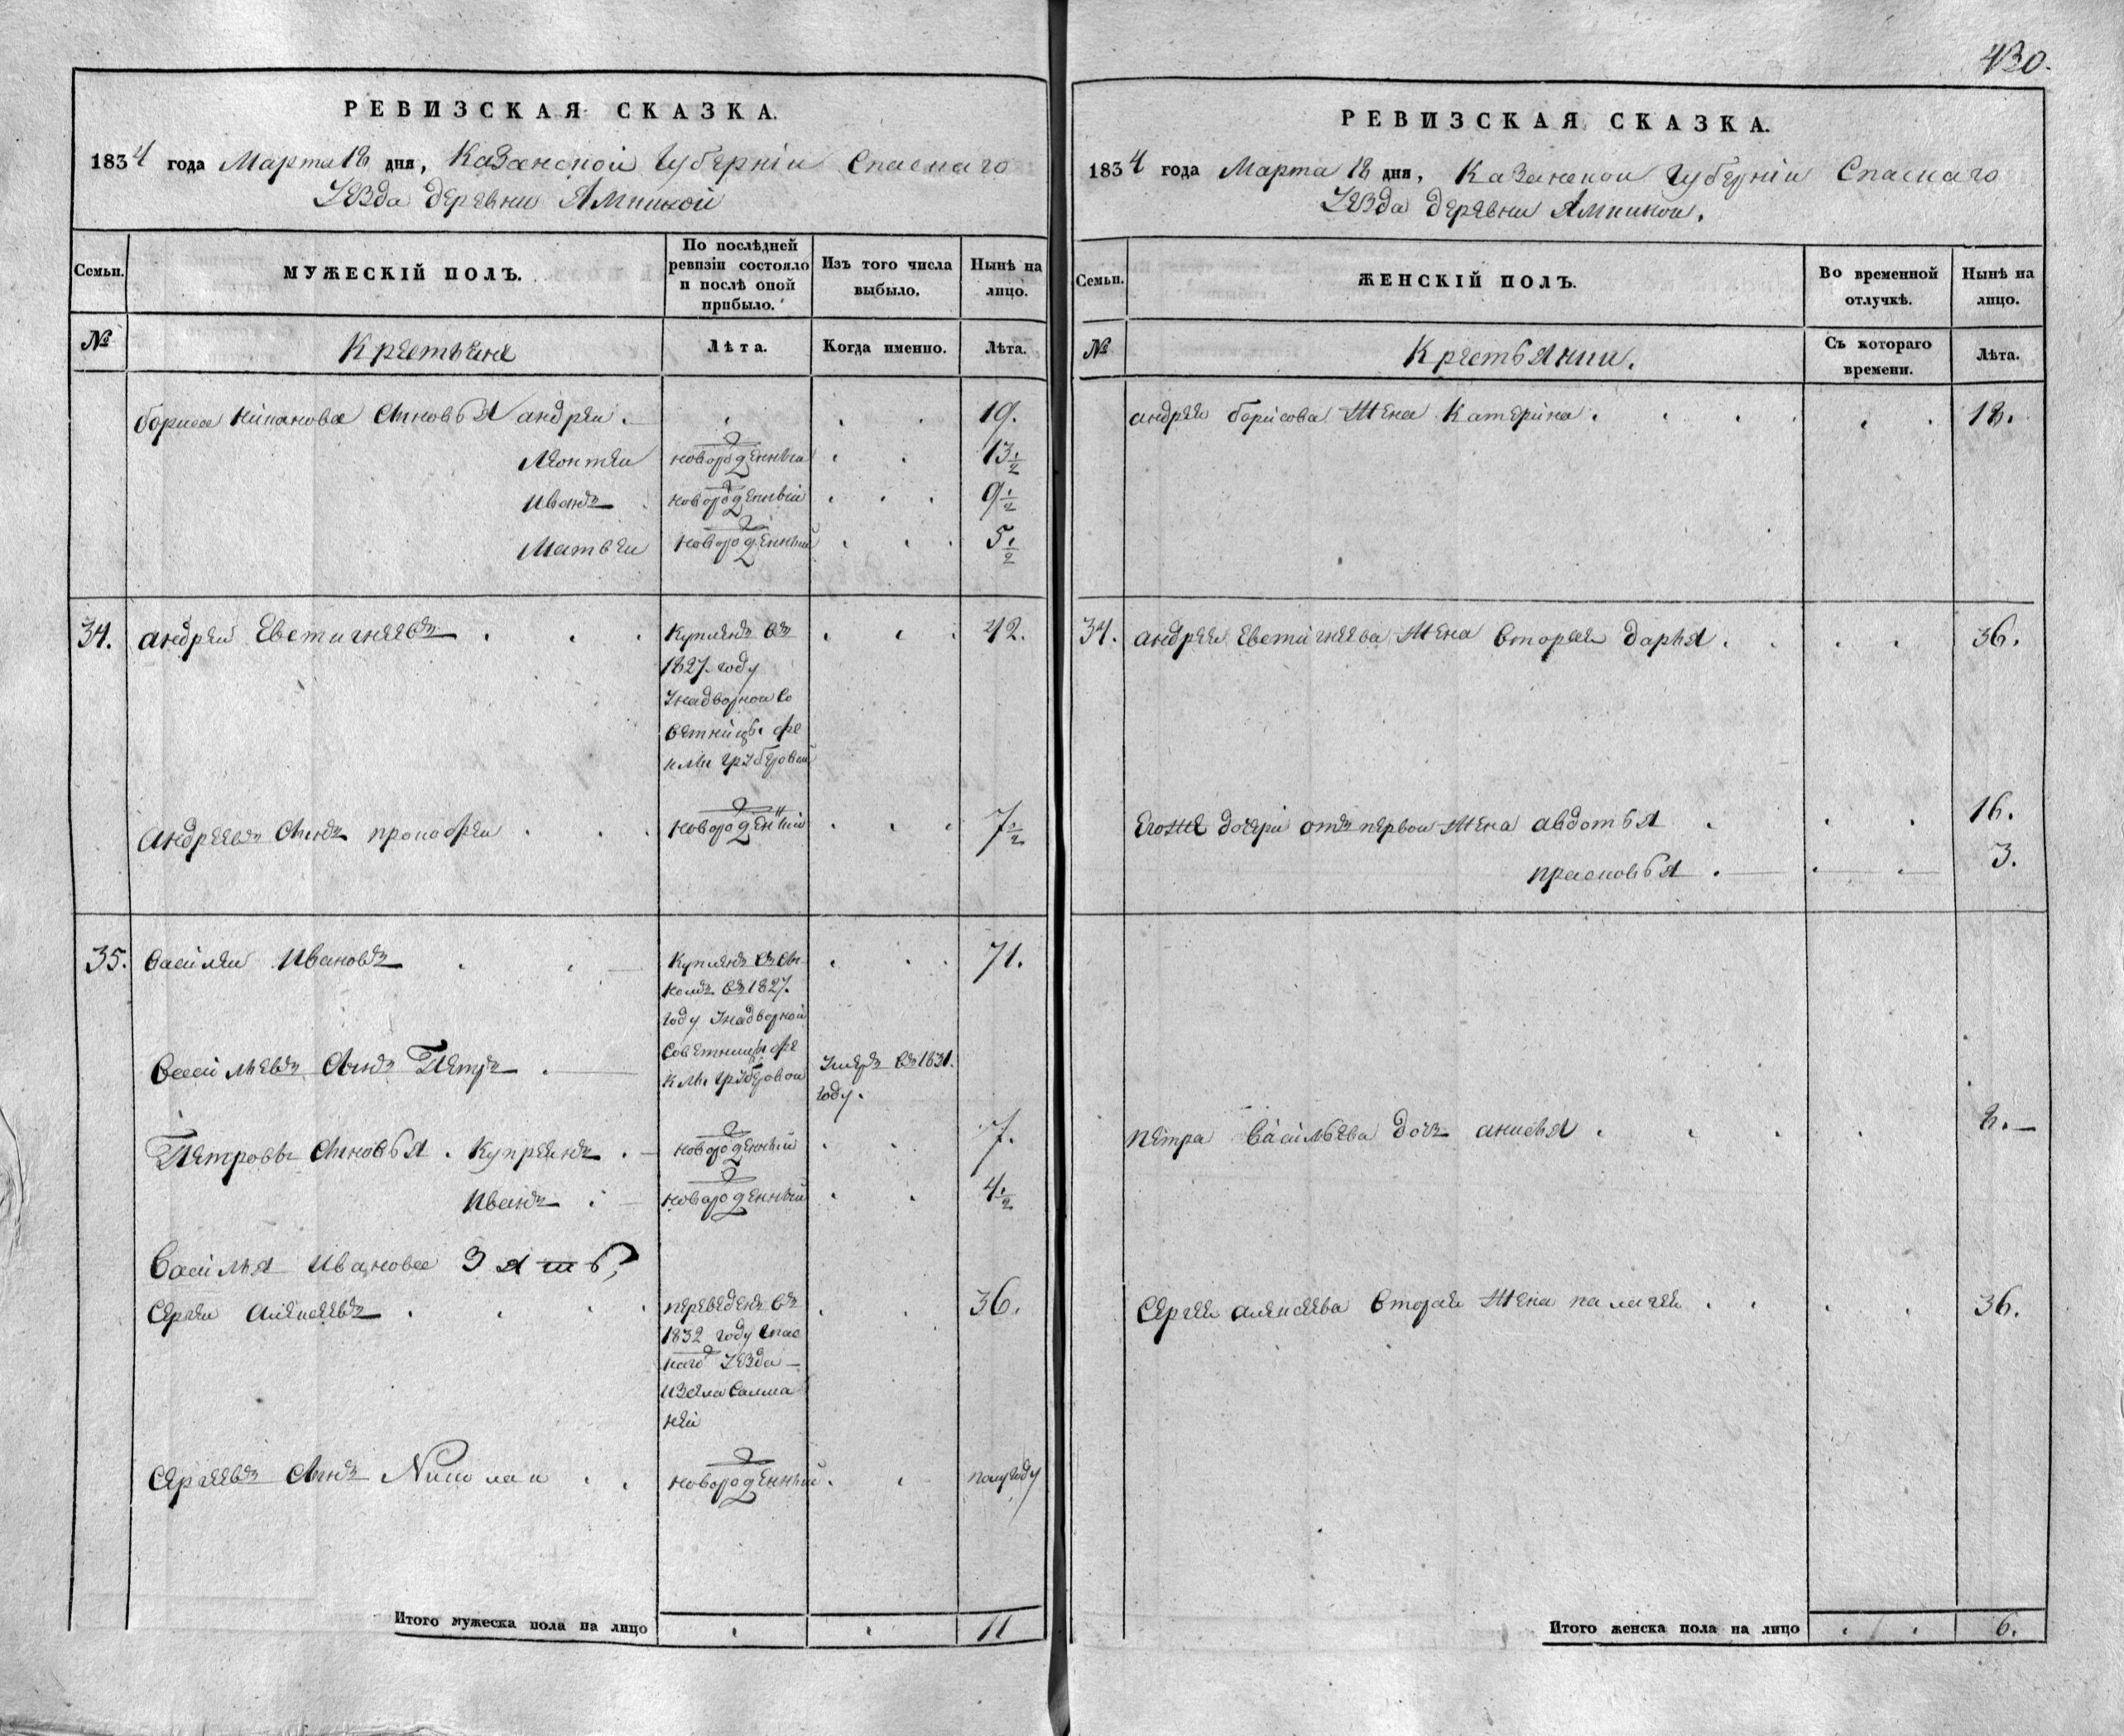 430.
РЕВИЗСКАЯ СКАЗКА.
1834 года Марта 18 дня, Казанской Губерніи Спаскаго
Уезда деревни Ямкиной
Семьи.
МУЖЕСКІЙ ПОЛЪ.
По послѣдней ревизіи состояло и послѣ оной прибыло.
Изъ того числа выбыло.
Нынѣ на лицо.
№
Крестьяне
Лѣта.
Когда именно.
Лѣта.
бориса Сыновья андреи 19.
Леонтеи новорожденныи 13 1/2
Иванъ новорожденныи 9 1/2
Матвеи новорожденный 5 1/2
34. андреи Евстигнеевъ Купленъ въ 42.
1827. году
Унадворнои Со
ветницы фе
клы грУберовой
Андреевъ Сынъ прокофеи новорожденный 7 1/2
35. Василеи Ивановъ Купленъ съ сы 71.
номъ въ 1827.
году Унадворной
Советницы фе
клы грУберовои
Васильевъ Сынъ Петръ Умеръ въ 1831.
году.
Петровы Сыновья Купреянъ новорожденный 7.
Иванъ новорожденный 4 1/2
Василья Иванова Зять
Сергеи алексеевъ переведенъ въ 36.
1832 году Спас
каго Уезда
изсела Салма
ней
Сергеевъ Сынъ Николаи новорожденный полугоду
Итого мужеска пола на лицо 11
РЕВИЗСКАЯ СКАЗКА.
1834 года Марта 18 дня, Казанской Губерніи Спаскаго
Уезда деревни Ямкиной.
Семьи.
ЖЕНСКІЙ ПОЛЪ.
Во временной отлучкѣ.
Нынѣ на лицо.
№
Крестьянки.
Съ котораго времени.
Лѣта.
андрея борисова Жена Катерина 18.
34. андрея Евстигнеева Жена вторая дарья 36.
Егоже дочери отъ первои Жена авдотья 16.
прасковья 3.
петра Васильева дочь анисья 8.
Сергея алексеева вторая Жена палагея 36.
Итого женска пола на лицо 6.